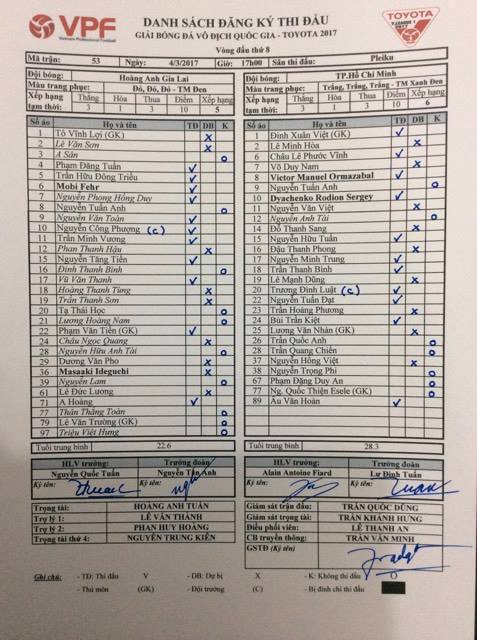 VPF
Vietnam Professional Football
DANH SÁCH ĐĂNG KÝ THI ĐẤU
GIẢI BÓNG ĐÁ VÔ ĐỊCH QUỐC GIA - TOYOTA 2017
Vòng đấu thứ 8
TOYOTA
V.LEAGUE 1
2017
Mã trận: 53 Ngày: 4/3/2017 Giờ: 17h00 Sân thi đấu: Pleiku
Đội bóng: Hoàng Anh Gia Lai
Màu trang phục: Đỏ, Đỏ, Đỏ - TM Đen
Xếp hạng tạm thời: Thắng Hòa Thua Điểm Xếp hạng
3 1 3 10 5
Số áo Họ và tên TĐ DB K
1 Tô Vĩnh Lợi (GK) X
2 Lê Văn Sơn X
3 A Sân O
4 Phạm Đăng Tuấn V
5 Trần Hữu Đông Triều V
6 Mobi Fehr V
7 Nguyễn Phong Hồng Duy V
8 Nguyễn Tuấn Anh O
9 Nguyễn Văn Toàn V
10 Nguyễn Công Phượng (c) V
11 Trần Minh Vương V
12 Phan Thanh Hậu X
15 Nguyễn Tăng Tiến V
16 Đinh Thanh Bình O
17 Vũ Văn Thanh V
18 Hoàng Thanh Tùng X
19 Trần Thanh Sơn X
20 Tạ Thái Học O
21 Lương Hoàng Nam O
22 Phạm Văn Tiến (GK) V
24 Châu Ngọc Quang X
28 Nguyễn Hữu Anh Tài O
29 Dương Văn Pho X
36 Masaaki Ideguchi X
39 Nguyễn Lam O
61 Lê Đức Lương X
71 A Hoàng V
77 Thân Thắng Toàn O
79 Lê Văn Trường (GK) O
97 Triệu Việt Hưng O
Tuổi trung bình 22.6
HLV trưởng: Trưởng đoàn
Nguyễn Quốc Tuấn Nguyễn Tấn Anh
Ký tên: Ký tên:
Trọng tài: HOÀNG ANH TUẤN
Trợ lý 1: LÊ VĂN THÀNH
Trợ lý 2: PHAN HUY HOÀNG
Trọng tài thứ 4: NGUYỄN TRUNG KIÊN
Đội bóng: TP.Hồ Chí Minh
Màu trang phục: Trắng, Trắng, Trắng - TM Xanh Đen
Xếp hạng tạm thời: Thắng Hòa Thua Điểm Xếp hạng
3 1 3 10 6
Số áo Họ và tên TĐ DB K
1 Đinh Xuân Việt (GK) V
2 Lê Minh Hòa X
6 Châu Lê Phước Vĩnh V
7 Võ Duy Nam X
8 Victor Manuel Ormazabal V
9 Nguyễn Tuấn Anh O
10 Dyachenko Rodion Sergey V
11 Nguyễn Văn Việt X
12 Nguyễn Anh Tài O
14 Đỗ Thanh Sang X
15 Nguyễn Hữu Tuấn V
16 Đậu Thanh Phong X
17 Nguyễn Minh Trung V
18 Trần Thanh Bình V
19 Lê Mạnh Dũng X
20 Trương Đình Luật (c) V
22 Nguyễn Tuấn Đạt V
23 Trần Hoàng Phương X
24 Bùi Trần Kiệt V
25 Lương Văn Nhàn (GK) X
26 Trần Quốc Anh O
28 Trần Quang Chiến O
37 Nguyễn Hồng Việt X
38 Nguyễn Trọng Phi O
67 Phạm Đặng Duy An O
77 Ng. Quốc Thiện Esele (GK) O
89 Âu Văn Hoàn V
Tuổi trung bình 28.3
HLV trưởng: Trưởng đoàn
Alain Antoine Fiard Lư Đình Tuấn
Ký tên: Ký tên:
Giám sát trận đấu: TRẦN QUỐC DŨNG
Giám sát trọng tài: TRẦN KHÁNH HƯNG
Điều phối viên: LÊ THANH AN
CB truyền thông: TRẦN VĂN MINH
GSTĐ (Ký tên)
Ghi chú: - TĐ: Thi đấu V - DB: Dự bị X - K: Không thi đấu O
- Thủ môn (GK) - Đội trưởng (C) - Bị đình chỉ thi đấu